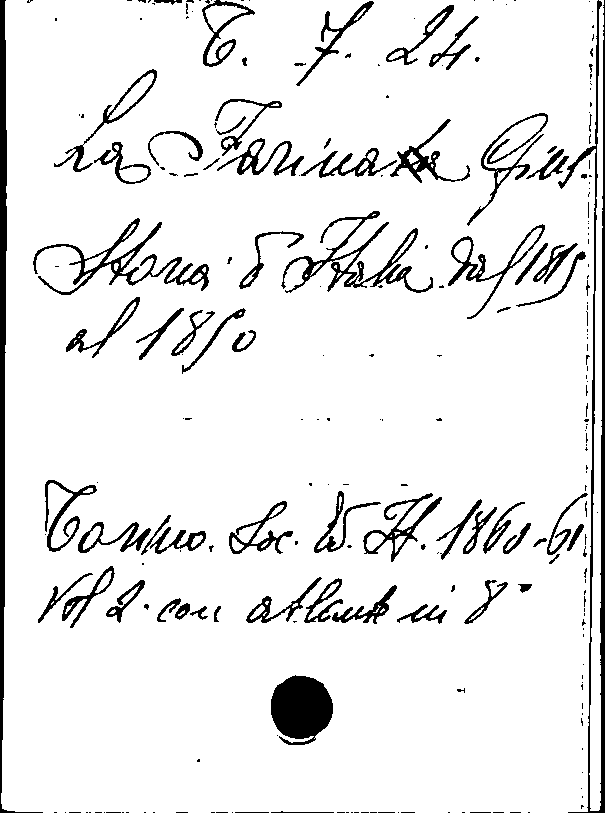 C. 7. 24.
La Farina Gius.
Storia d'Italia dal 1815
al 1850
Torino. Soc. Ed. It. 1860-61
Vol 2. con atlante in 8°